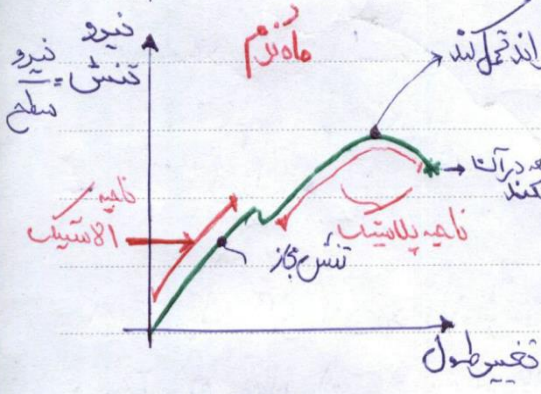 نیرو
تنش = نیرو / سطح
ماده نرم
تحمل کند
ناحیه
الاستیک
تنش مجاز
ناحیه پلاستیک
کند
تغییر طول